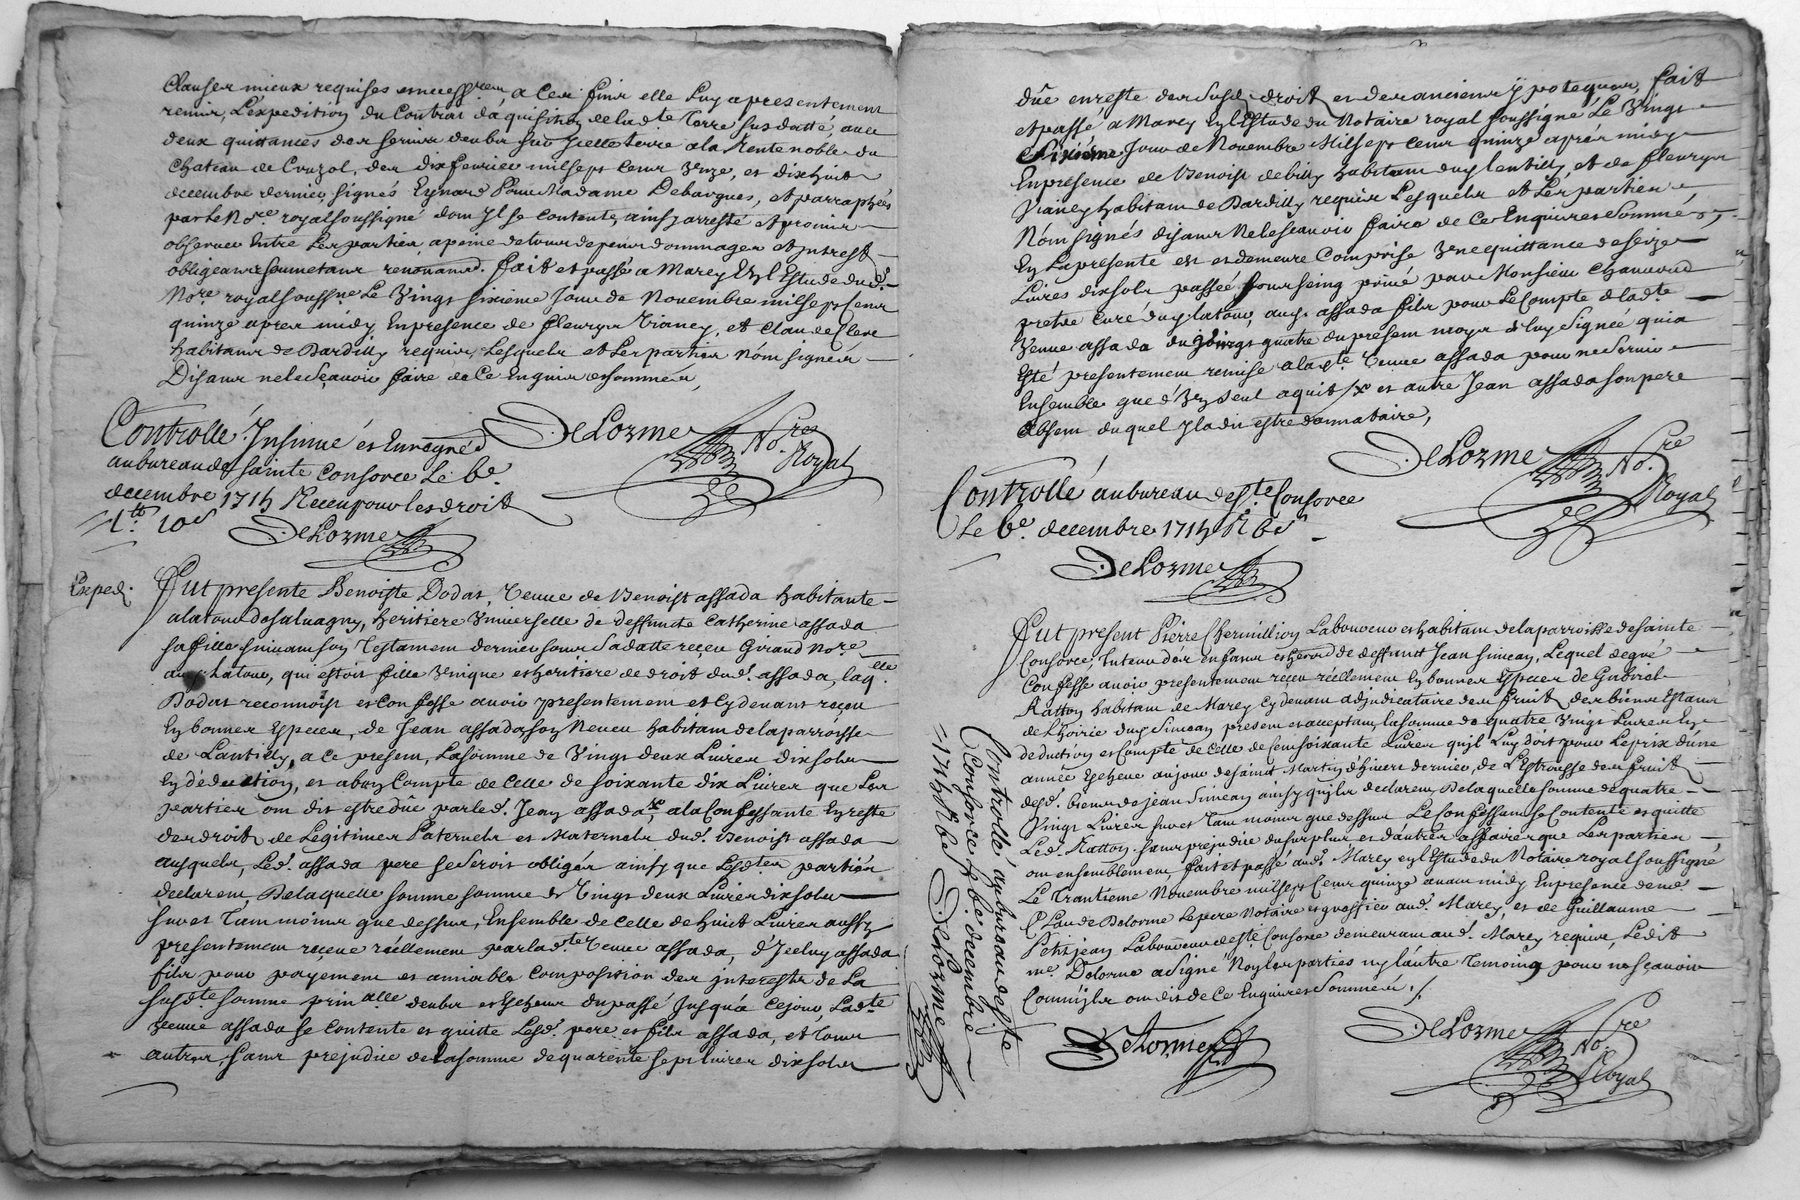 Clauses mieux requises et necess.res a Ces fins elle Luy a presentement
remis L'expedition du Contrat d'aquisition de lad.te Terre susdatté, avec
deux quittances des servis deubs sur Jcelle terre a la Rente noble du
Chateau de Cruzol, des dix fevrier mil sept cent Unze, et dix huit
decembre dernier, signés Eynard Pour Madame Debargues, et parraphées
par Le No.re royal soussigné dont Jl se contente, ainsy arresté et promis
observer Entre Les parties a peine de tous depens dommages et Jntrest
obligeans soumettans renonceans. fait et passé a Marcy En L'Estude dud.
No.re royal soussné Le Vingt sixieme Jour de Novembre mil sept Cent
quinze apres midy, En presence de fleurys Vianey, et Claude Clerc
habitans de Dardilly requis, Lesquels et Les parties n'ont signé
Disans ne le Sçavoir faire de Ce Enquis et sommés,
Controllé Jnsinué et Enregré
au bureau de sainte Consorce Le 6e
decembre 1715 Receu pour les droit
1tt 10s
DeLorme
DeLorme No.re Royal
Exped.
Fut presente Benoiste Dodat, Veuve de Benoist assada habitante
a la tour de salvagny, heritiere Universelle de deffuncte Catherine assada
sa fille suivant son Testament dernier sous sa datte receu Giraud No.re
aud. latour, qui estoit fille Unique et heritiere de droit dud. assada, laq.lle
Dodat reconnoist et Confesse avoir presentement et Cy devant receu
En bonnes Especes, de Jean assada son Neveu habitant de la parroisse
de Lantilly, a ce present, La somme de Vingt deux Livres dix sols
En deduction, et a bon Compte de Celle de soixante dix Livres que Les
parties ont dit estre düe par led. Jean assada, a la Confessante En reste
des droits de Legitimes Paternels et Maternels dud. Benoist assada
ausquels, Led. assada pere se seroit obligés ainsy que Lesd.tes parties
declarent, De laquelle somme somme de Vingt deux Livres dix sols
sur et Tant moins que dessus, Ensemble de Celle de huict Livres aussy
presentement receue réellement par lad.te Veuve assada, d'Jceluy assada
fils pour payement et amiable Composition des jnterests de La
susd.te somme prin.alle deubs et Echeus du passé Jusqu'à Ce jour, Lad.te
veuve assada se Contente et quitte Lesd. pere et fils assada, et tous
autres, sans prejudice de La somme de quarente sept Livres dix sols
düe en reste des susd. droits et des anciens ypoteques, fait
et passé a Marcy En L'Estude du Notaire royal soussigné Le Vingt
Sixiéme Jour de Novembre Mil sept cent quinze aprés midy
En presence de Benoist debilly habitant duy lentilly, et de fleurys
Vianey habitant de Dardilly requis Lesquels et Les parties
N'ont signés disans Ne le sçavoir faire de Ce Enquis et sommés,
En La presente est et demeure Comprise Une quittance de seize
Livres dix sols passée sous seing privé par Monsieur Chanvond
pretre curé duy latour, auy. assada fils pour Le Compte de lad.te
Veuve assada du Vingt quatre du present moys de luy Signée qui a
Esté presentement remise a la d.te Veuve assada pour ne servir
Ensemble que d'Un seul aquit et autre Jean assada son pere
absent duquel Jl a dit estre donnataire,
DeLorme No.re Royal
Controllé au bureau de s.te Consorce
Le 6e decembre 1715 R 6s
DeLorme
Fut present Pierre Thermillion Laboureur et habitant de la parroisse de sainte
Consorce, Tuteur des enfans et hoirs de deffunct Jean Simean, Lequel de gré
Confesse avoir presentement receu réellement En bonnes Especes de Gabriel
Ratton habitant de Marcy Cy devant adjudicataire des fruits des biens Estans
de L'hoirie duy Simean present et acceptant, la somme de quatre Vingt Livres En
deduction et Compte de Celle de Cent soixante Livres qu'il Luy doit pour Le prix d'une
année Echeue au jour de saint Martin d'hivert dernier, de L'Estrousse des fruits
desd. biens de jean Simean ainsy qu'ils declarent, De laquelle somme de quatre
Vingt Livres sur et Tant moins que dessus Le Confessant se Contente et quitte
Led. Ratton, sans prejudice du surplus et d'autres affaires que Les parties
ont ensemblement, fait et passé aud. Marcy en L'Estude du Notaire royal soussigné
Le Trantieme Novembre mil sept Cent quinze avant midy En presence de me
Claude Delorme Le pere Notaire et greffier aud. Marcy, et de Guillaume
Petitjean Laboureur de s.te Consorce demeurant aud. Marcy requis, Ledit
me. Delorme a Signé Non Les parties ny l'autre temoing pour ne sçavoir
Comm'ils ont dit de Ce Enquis et sommés ./.
Delorme
DeLorme No.re Royal
Controllé au bureau de s.te
Consorce Le 6e decembre
1715 R 6s DeLorme